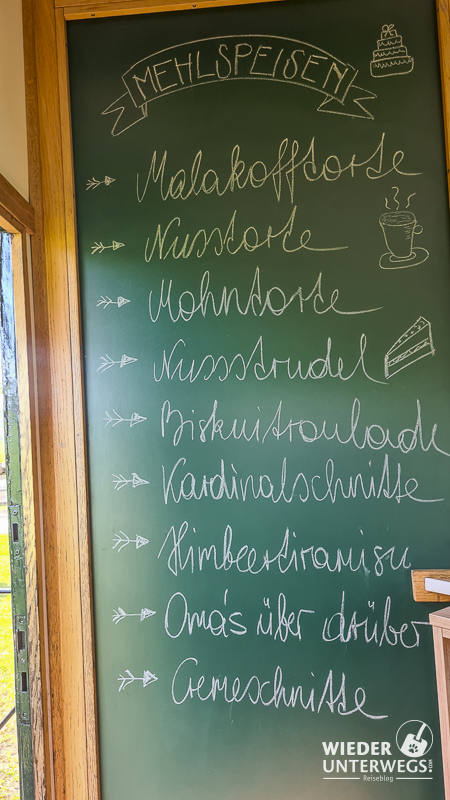 MEHLSPEISEN
Malakofftorte
Nusstorte
Mohntorte
Nussstrudel
Biskuitroulade
Kardinalschnitte
Himbeertiramisu
Oma's über drüber
Cremeschnitte
WIEDER
UNTERWEGS.COM
Reiseblog